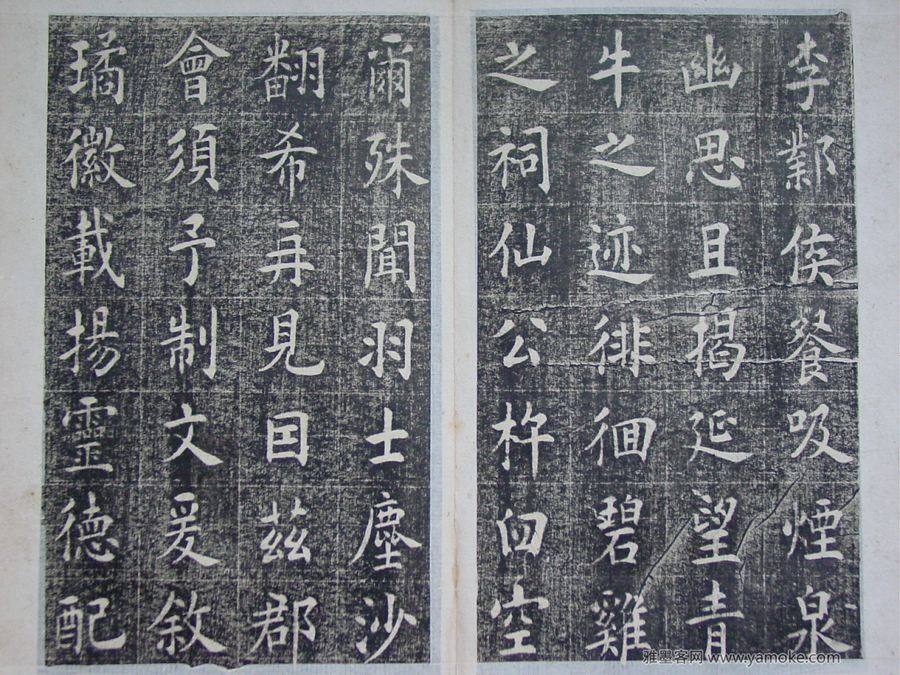 李鄴侯餐吸煙泉
幽思且揭延望青
牛之迹徘徊碧雞
之祠仙公杵臼空
爾殊聞羽士塵沙
翻希再見囙茲郡
會須予制文爰敘
璚徽載揚靈德配
雅墨客网 www.yamoke.com